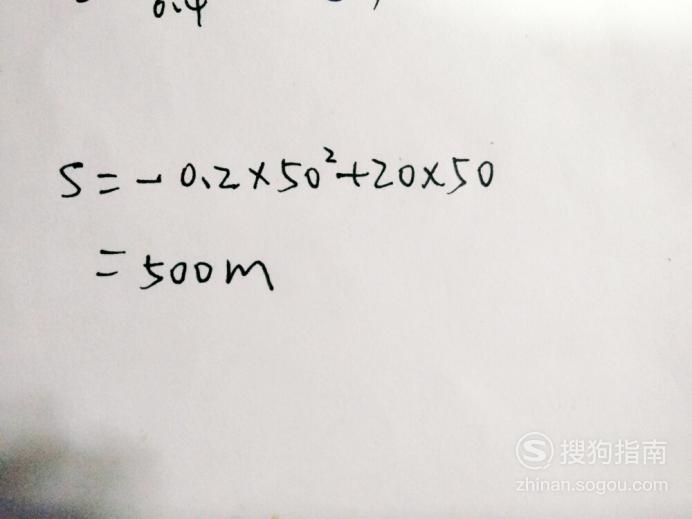 0.4
S=-0.2×50²+20×50
=500m
搜狗指南
zhinan.sogou.com